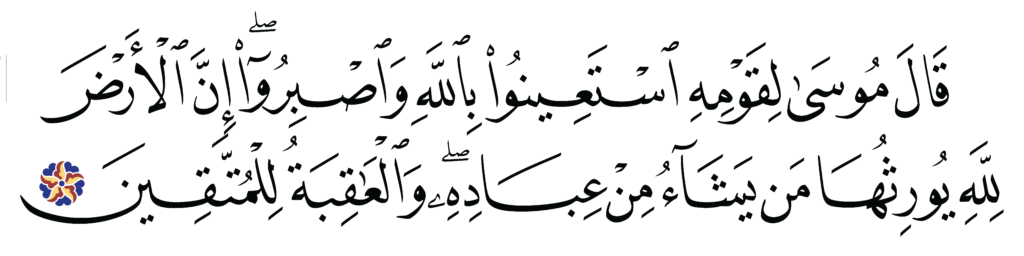 قَالَ مُوسَىٰ لِقَوْمِهِ ٱسْتَعِينُوا۟ بِٱللَّهِ وَٱصْبِرُوٓا۟ ۖ إِنَّ ٱلْأَرْضَ
لِلَّهِ يُورِثُهَا مَن يَشَآءُ مِنْ عِبَادِهِۦ ۖ وَٱلْعَٰقِبَةُ لِلْمُتَّقِينَ